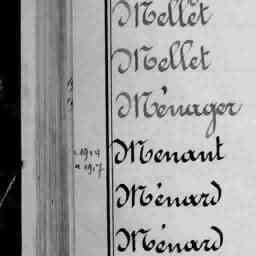 Mellet
Mellet
Ménager
Menant
Ménard
Ménard